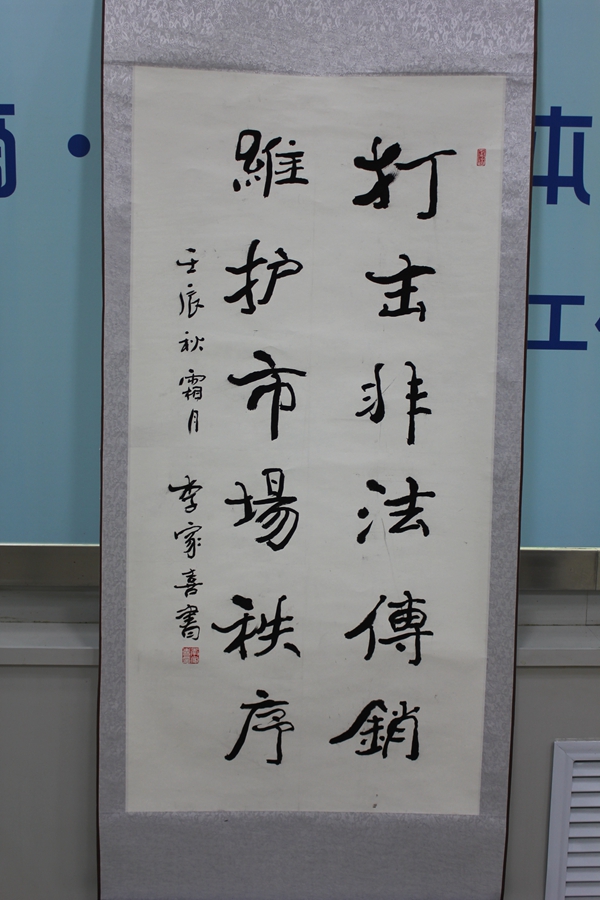 打击非法傳銷
維护市場秩序
壬辰秋霜月 李家喜書
本
工